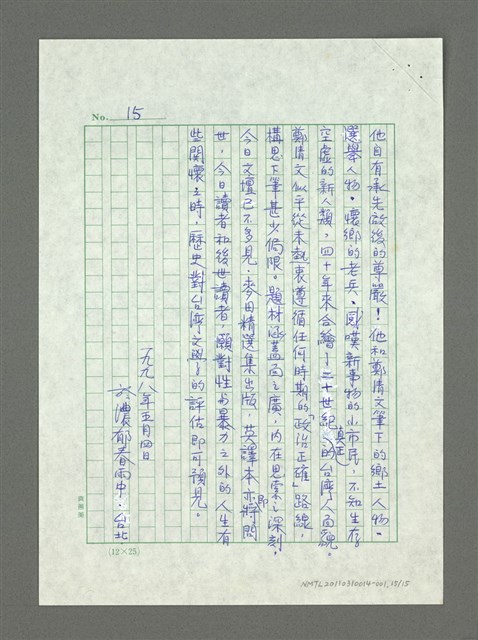 No. 15
他自有承先啟後的尊嚴！他和鄭清文筆下的鄉土人物、
選舉人物、懷鄉的老兵、感嘆新事物的小市民，不知生存
空虛的新人類，四十年來合繪了二十世紀真正的台灣人面貌。
鄭清文似乎從未熱衷遵循任何時期的「政治正確」路線，
構思下筆甚少侷限。題材涵蓋面之廣，內在思索之深刻，
今日文壇已不多見。麥田精選集出版，英譯本亦即將問
世，今日讀者和後世讀者，願對性與暴力之外的人生有
些關懷之時，歷史對台灣文學的評估即可預見。
一九九八年五月四日
於濃郁春雨中．台北
(12×25)
NMTL20110310014-001_15/15